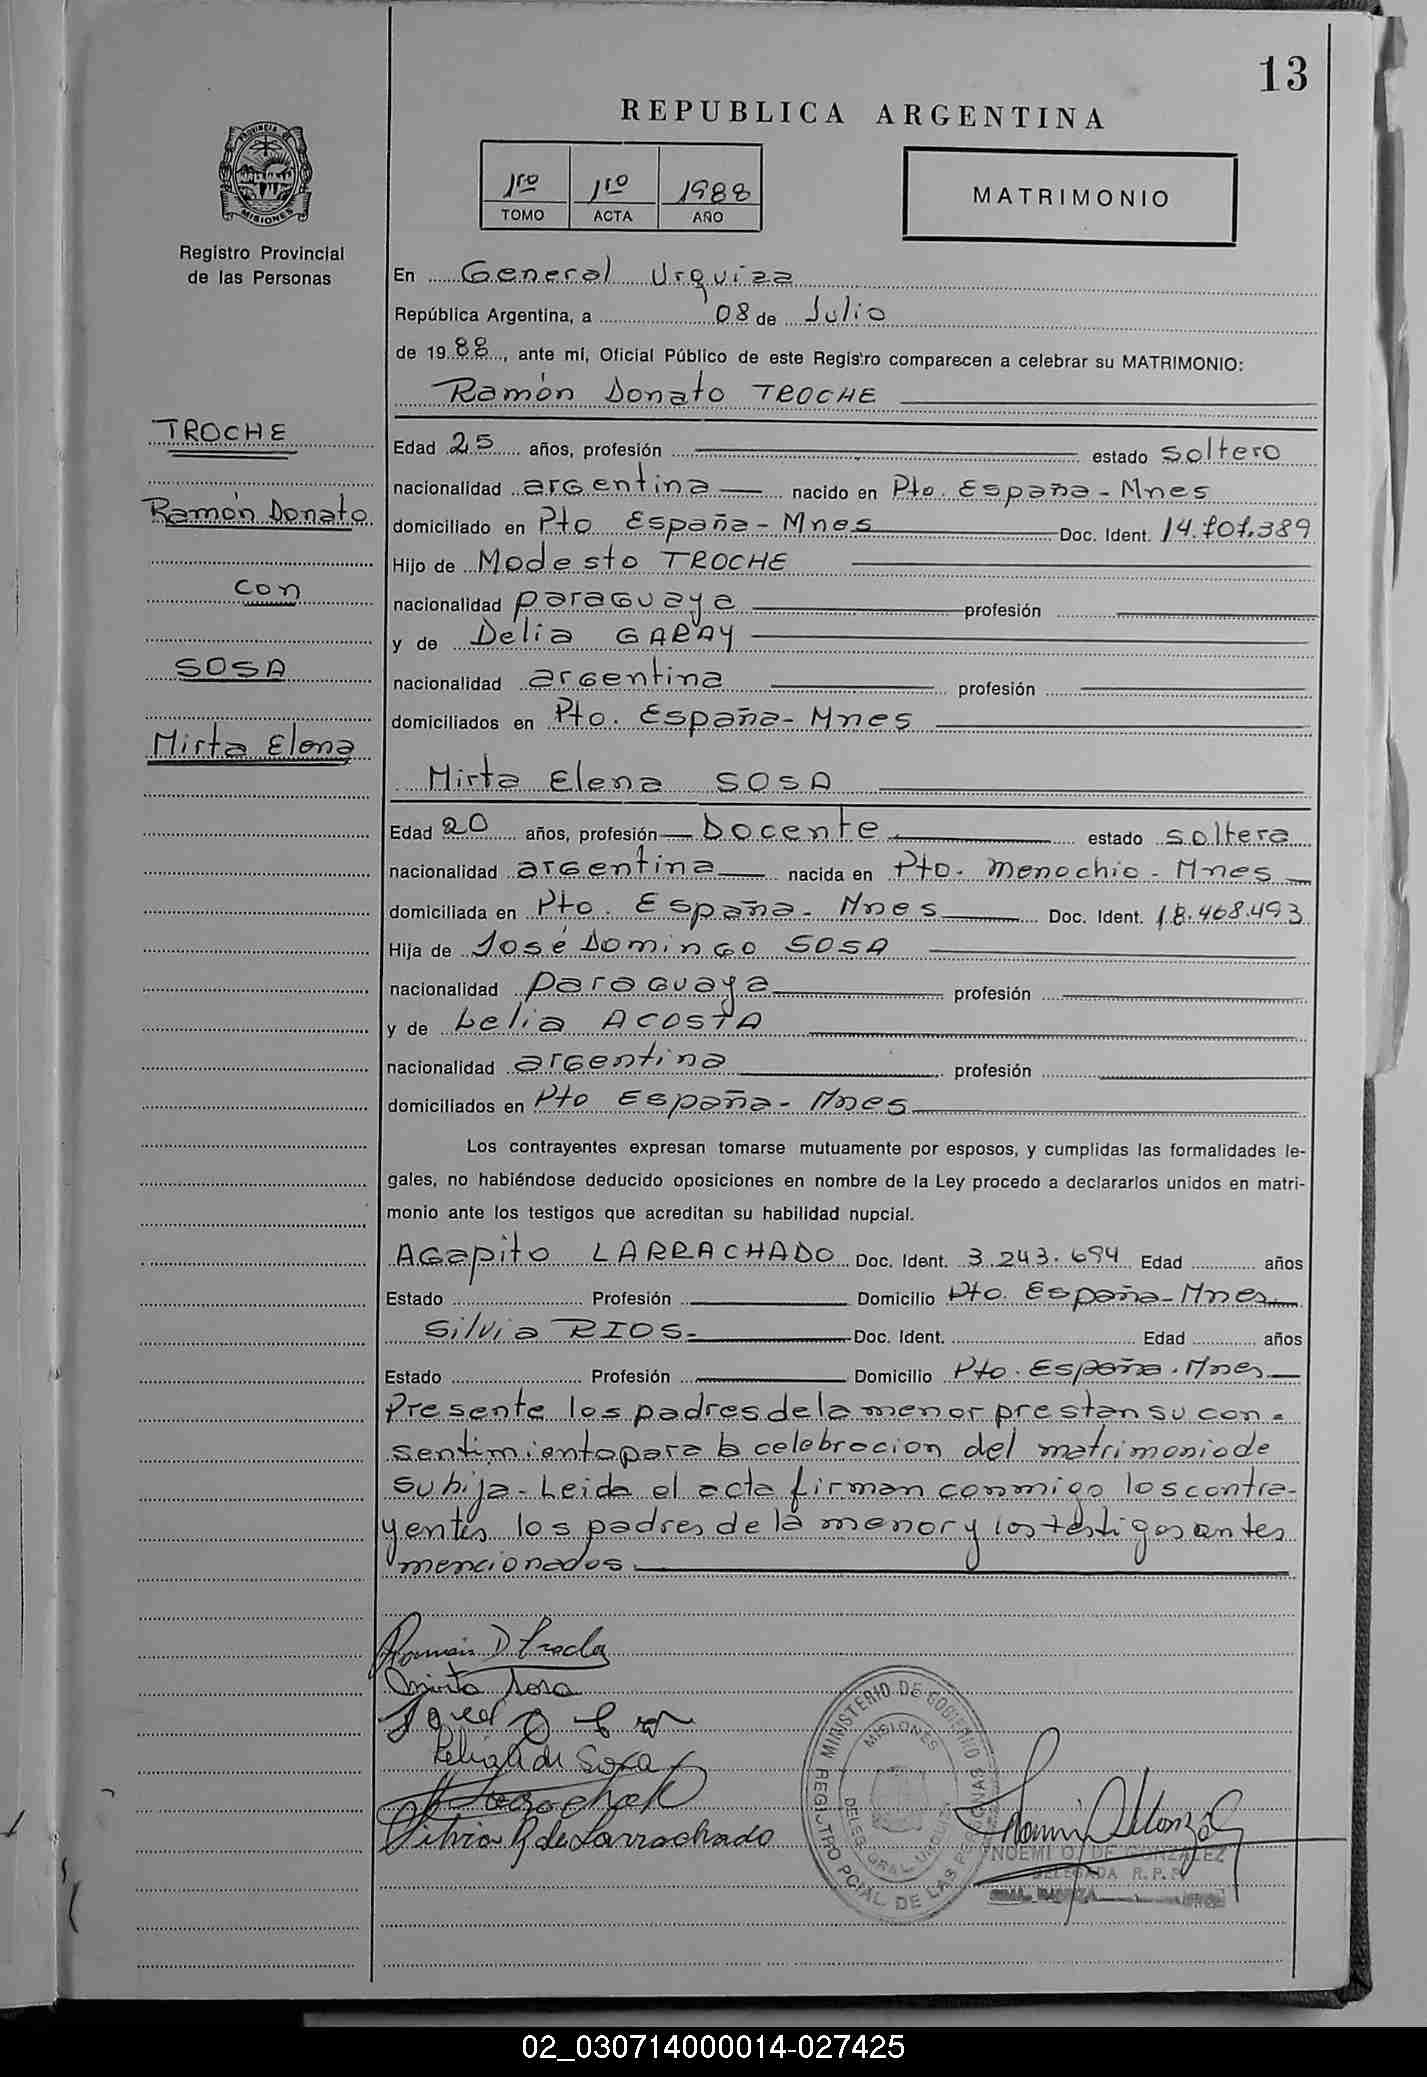 13
REPUBLICA ARGENTINA
1ro 1ro 1988
TOMO ACTA AÑO
MATRIMONIO
PROVINCIA DE MISIONES
Registro Provincial
de las Personas
En General Urquiza
República Argentina, a 08 de Julio
de 1988, ante mí, Oficial Público de este Registro comparecen a celebrar su MATRIMONIO:
Ramón Donato TROCHE
TROCHE
Ramón Donato
con
SOSA
Mirta Elena
Edad 25 años, profesión estado soltero
nacionalidad argentina nacido en Pto. España - Mnes
domiciliado en Pto España - Mnes Doc. Ident.
Hijo de Modesto TROCHE
nacionalidad paraguaya profesión
y de Delia GARAY
nacionalidad argentina profesión
domiciliados en Pto. España - Mnes
Mirta Elena SOSA
Edad 20 años, profesión Docente estado soltera
nacionalidad argentina nacida en Pto. Menochio - Mnes
domiciliada en Pto. España - Mnes Doc. Ident. 18.468.493
Hija de José Domingo SOSA
nacionalidad paraguaya profesión
y de Lelia ACOSTA
nacionalidad argentina profesión
domiciliados en Pto España - Mnes
Los contrayentes expresan tomarse mutuamente por esposos, y cumplidas las formalidades le-
gales, no habiéndose deducido oposiciones en nombre de la Ley procedo a declararlos unidos en matri-
monio ante los testigos que acreditan su habilidad nupcial.
Agapito LARRACHADO Doc. Ident. 3.243.694 Edad años
Estado Profesión Domicilio Pto. España - Mnes
Silvia RIOS Doc. Ident. Edad años
Estado Profesión Domicilio Pto. España - Mnes
Presente los padres de la menor prestan su con-
sentimiento para la celebracion del matrimonio de
su hija - Leida el acta firman conmigo los contra-
yentes los padres de la menor y los testigos antes
mencionados
Ramón D Troche
Mirta Sosa
de Sosa
Silvia R de Larrachado
MINISTERIO DE GOBIERNO
MISIONES
DELEG. GRAL. URQUIZA
REGISTRO PCIAL. DE LAS PERSONAS
NOEMI O. DE GONZALEZ
DELEGADA R.P.P.
02_030714000014-027425